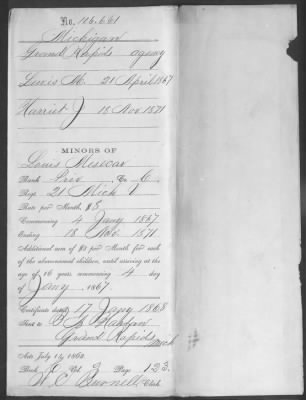 No. 116.661
Michigan
Grand Rapids agency
Lewis M. 21 April 1867
Harriet J 18 Nov 1871
MINORS OF
Louis
Rank Priv, Co C.
Regt. 21 Mich V
Rate per Month, $8
Commencing 4 Jany 1867
Ending 18 Nov. 1871
Additional sum of $2 per Month for each
of the abovenamed children, until arriving at the
age of 16 years commencing 4 day
of Jany 1867.
Certificate dated 17 Jany 1868
Sent to
Grand Rapids
Mich
Act July 14, 1862.
Book Vol. 3 Page 123
Burnell Clerk.